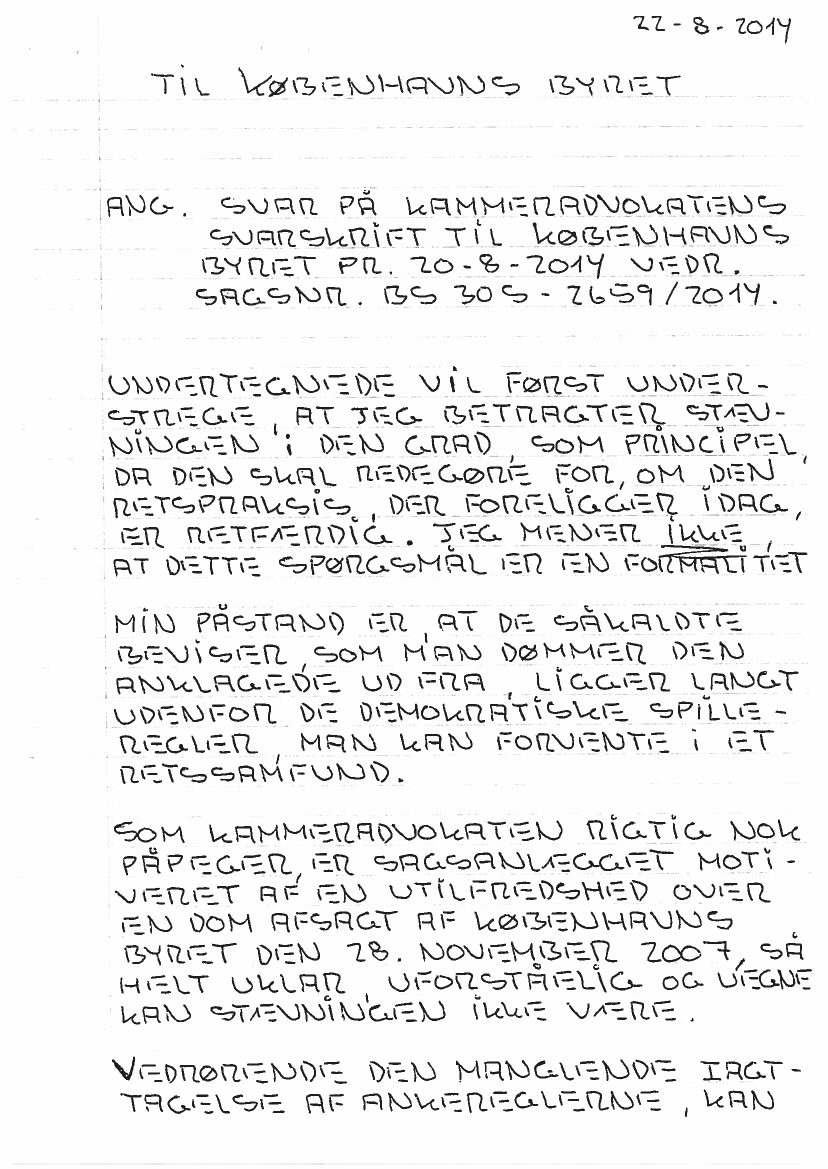 22-8-2014
TIL KØBENHAVNS BYRET
ANG. SVAR PÅ KAMMERADVOKATENS
SVARSKRIFT TIL KØBENHAVNS
BYRET PR. 20-8-2014 VEDR.
SAGSNR. BS 30S-2659/2014.
UNDERTEGNEDE VIL FØRST UNDER-
STREGE, AT JEG BETRAGTER STÆV-
NINGEN I DEN GRAD, SOM PRINCIPEL,
DA DEN SKAL REDEGØRE FOR, OM DEN
RETSPRAKSIS, DER FORELIGGER IDAG,
ER RETFÆRDIG. JEG MENER IKKE,
AT DETTE SPØRGSMÅL ER EN FORMALITET
MIN PÅSTAND ER, AT DE SÅKALDTE
BEVISER, SOM MAN DØMMER DEN
ANKLAGEDE UD FRA, LIGGER LANGT
UDENFOR DE DEMOKRATISKE SPILLE-
REGLER, MAN KAN FORVENTE I ET
RETSSAMFUND.
SOM KAMMERADVOKATEN RIGTIG NOK
PÅPEGER, ER SAGSANLÆGGET MOTI-
VERET AF EN UTILFREDSHED OVER
EN DOM AFSAGT AF KØBENHAVNS
BYRET DEN 28. NOVEMBER 2007, SÅ
HELT UKLAR, UFORSTÅELIG OG UEGNE
KAN STÆVNINGEN IKKE VÆRE.
VEDRØRENDE DEN MANGLENDE IAGT-
TAGELSE AF ANKEREGLERNE, KAN